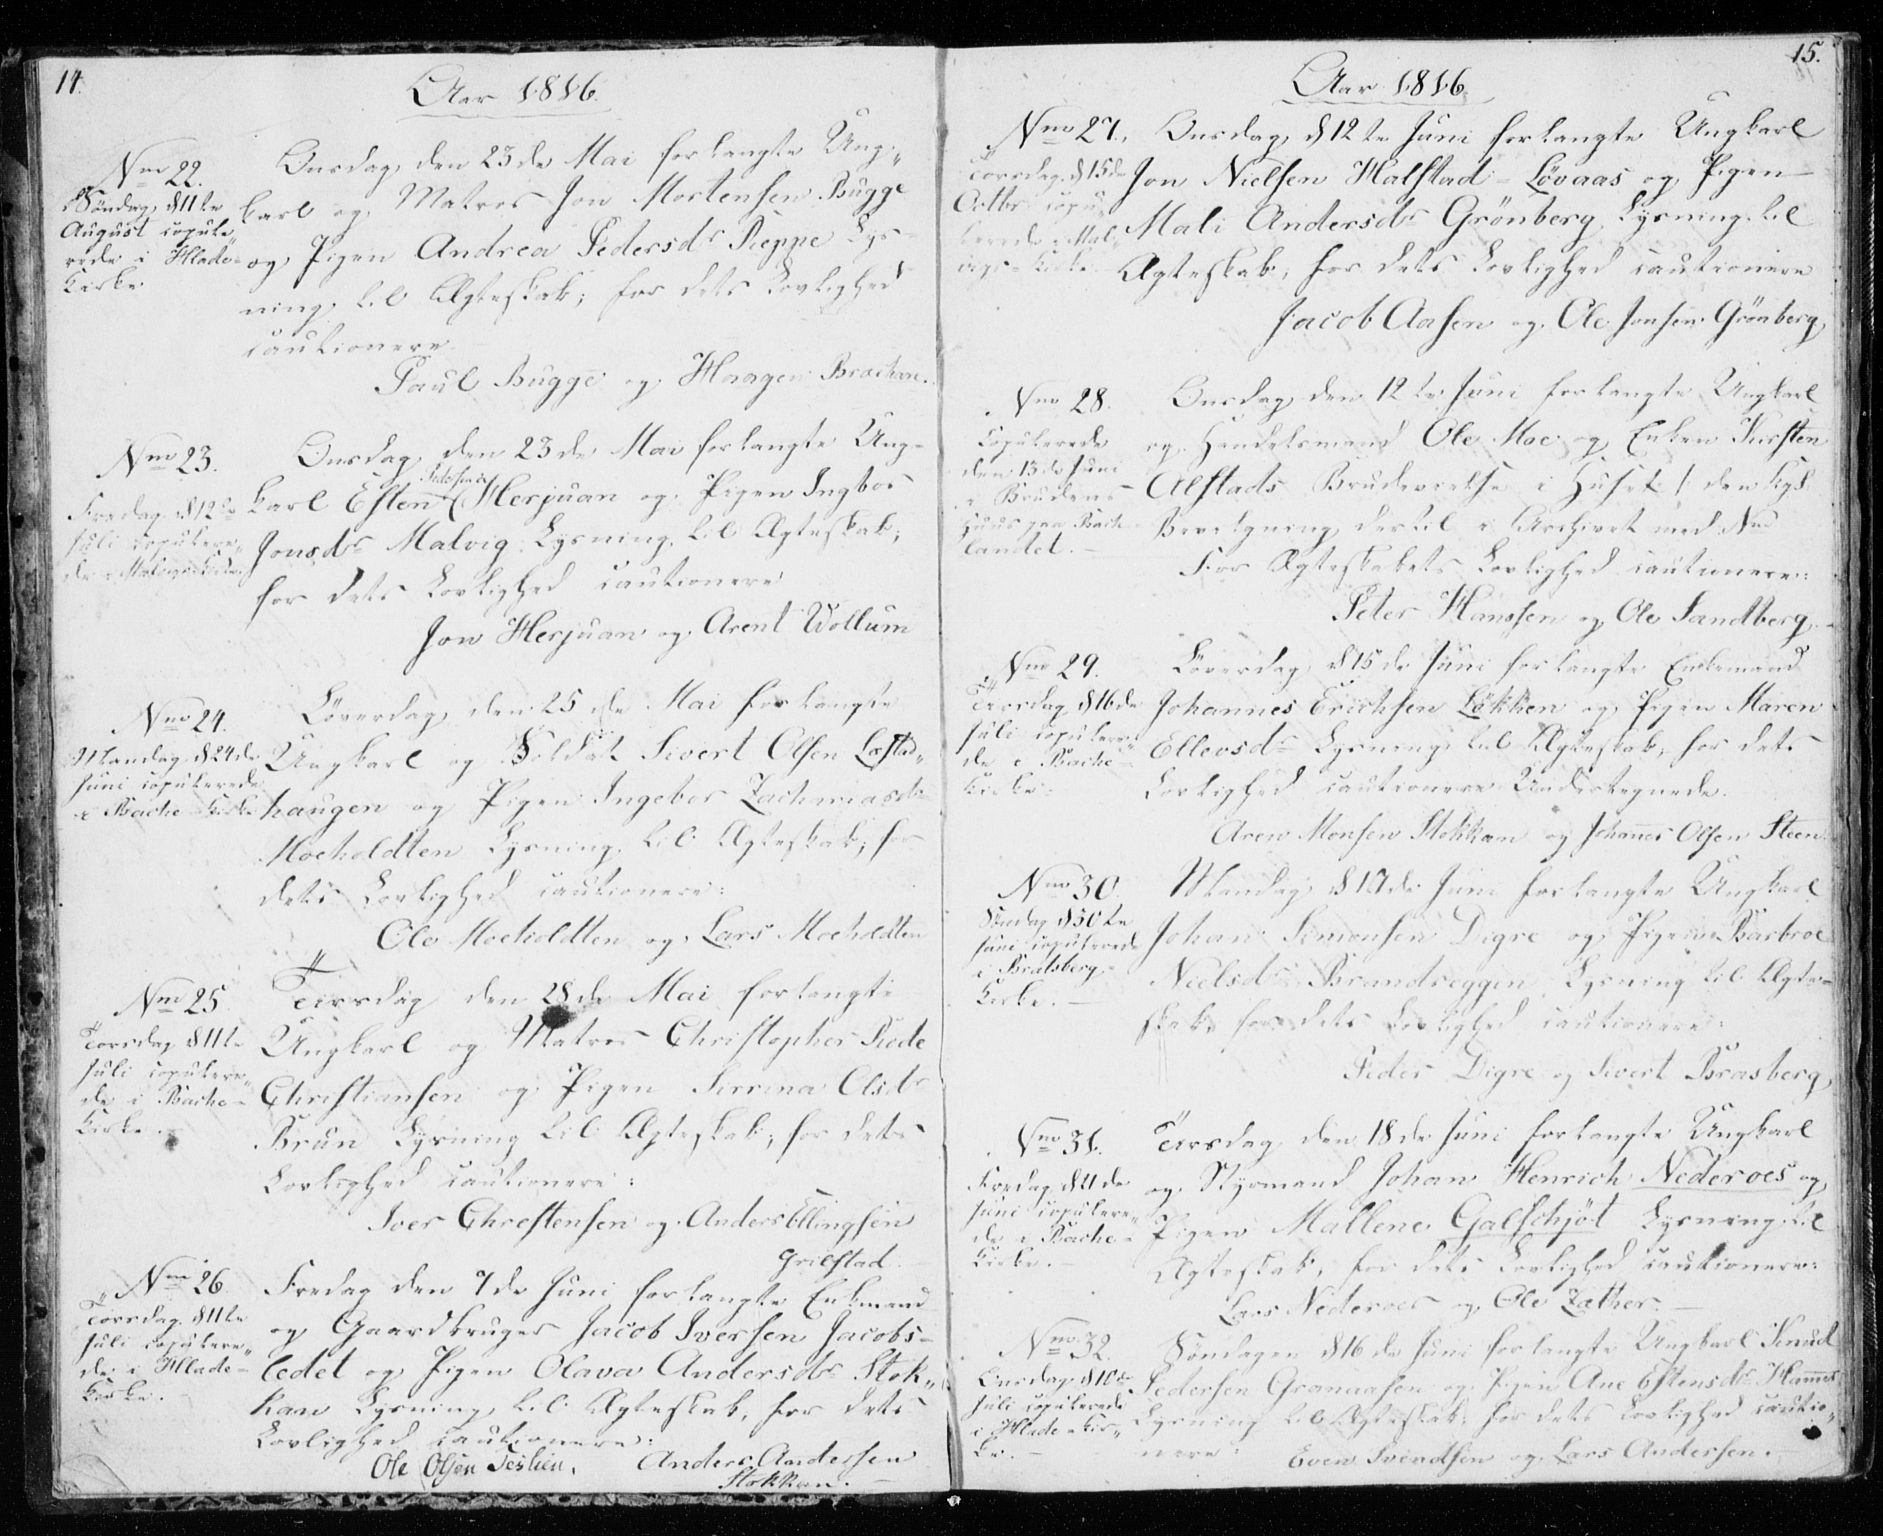 14.
Aar 1816.
Nmo 22.
Søndag d 11te
August copule
rede i Hlade-
Kirke
Onsdag den 23de Mai forlangte Ung-
karl og Matros Jon Mortensen Bugge
og Pigen Andrea Pedersdr Reppe Lys-
ning til Ægteskab; for dets Lovlighed
cautionere
Paul Bugge og Haagen Brachan.
Nmo 23.
Fredag d 12te
Juli copulere-
de i Malvigs Kirke.
Onsdag den 23de Mai forlangte Ung-
karl Esten Herjuan og Pigen Ingbor
Jonsdr Malvig Lysning til Ægteskab;
for dets Lovlighed cautionere
Jon Herjuan og Arent Wollum
Nmo 24.
Mandag d 24de
Juni copulerede
i Bache-Kirke
Løverdag den 25de Mai forlangte
Ungkarl og Soldat Sivert Olsen Lestad-
haugen og Pigen Ingebor Zachariasdr
Moeholdten Lysning til Ægteskab; for
dets Lovlighed cautionere:
Ole Moeholdten og Lars Moeholdten
Nmo 25.
Torsdag d 11te
Juli copulere-
de i Bache-
Kirke.
Tirsdag den 28de Mai forlangte
Ungkarl og Matros Christopher Rode
Christiansen og Pigen Sirrina Olsdr
Brun Lysning til Ægteskab; for dets
Lovlighed cautionere:
Iver Chrestensen og Anders Ellingsen
Grilstad
Nmo 26.
Torsdag d 11te
Juli copulere-
de i Hlade-
Kirke.
Fredag den 7de Juni forlangte Enkemand
og Gaardbruger Jacob Iversen Jacobs-
ledet og Pigen Olava Andersdr Stok-
kan Lysning til Ægteskab, for dets
Lovlighed cautionere:
Ole Olsen Teslien. Anders Andersen
Stokkan.
15.
Aar 1816.
Nmo 27.
Torsdag d 15de
Octbr copu-
lerede i Mal-
vigs-Kirke.
Onsdag d 12te Juni forlangte Ungkarl
Jon Nielsen Halstad-Løvaas og Pigen
Mali Andersdr Grönberg Lysning til
Ægteskab; for dets Lovlighed cautionere
Jacob Aasen og Ole Jonsen Grönberg
Nmo 28.
Copulerede
den 13de Juni
i Brudens
Huus paa Bach-
landet.
Onsdag den 12te Juni forlangte Ungkarl
og Handelsmand Ole Moe og Enken Kirsten
Alstads Brudevielse i Huset /: den Kgl.
Bevilgning dertil i Archivet med Nmo
For Ægteskabets Lovlighed cautionere:
Peter Hanssen og Ole Sandberg.
Nmo 29.
Tirsdag d 16de
Juli copulere-
de i Bache-
Kirke.
Løverdag d 15de Juni forlangte Enkemand
Johannes Erichsen Løkken og Pigen Maren
Ellevsdr Lysning til Ægteskab, for dets
Lovlighed cautionere Undertegnede.
Aren Monsen Stokkan og Johannes Olsen Steen
Nmo 30.
Søndag d 30te
Juni copulerede
i Bratsberg-
Kirke.
Mandag d 17de Juni forlangte Ungkarl
Johan Simonsen Digre og Pigen Barbroe
Nielsdr Brandseggen Lysning til Ægte-
skab for dets Lovlighed cautionere:
Peder Digre og Sivert Brasberg
Nmo 31.
Fredag d 21de
Juni copulere-
de i Bache-
Kirke.
Tirsdag den 18de Juni forlangte Ungkarl
og Styrmand Johan Henrich Nederoes og
Pigen Mallene Galschjöt Lysning til
Ægteskab, for dets Lovlighed cautionere:
Lars Nederoes og Ole Zather.
Nmo 32.
Onsdag d 10de
Juli copulerede
i Hlade-Kir-
ke.
Søndagen d 16de Juni forlangte Ungkarl Knud
Pedersen Granaasen og Pigen Ane Estensdr Hammer
Lysning til Ægteskab; for dets Lovlighed cautio-
nere: Even Svendsen og Lars Andersen.